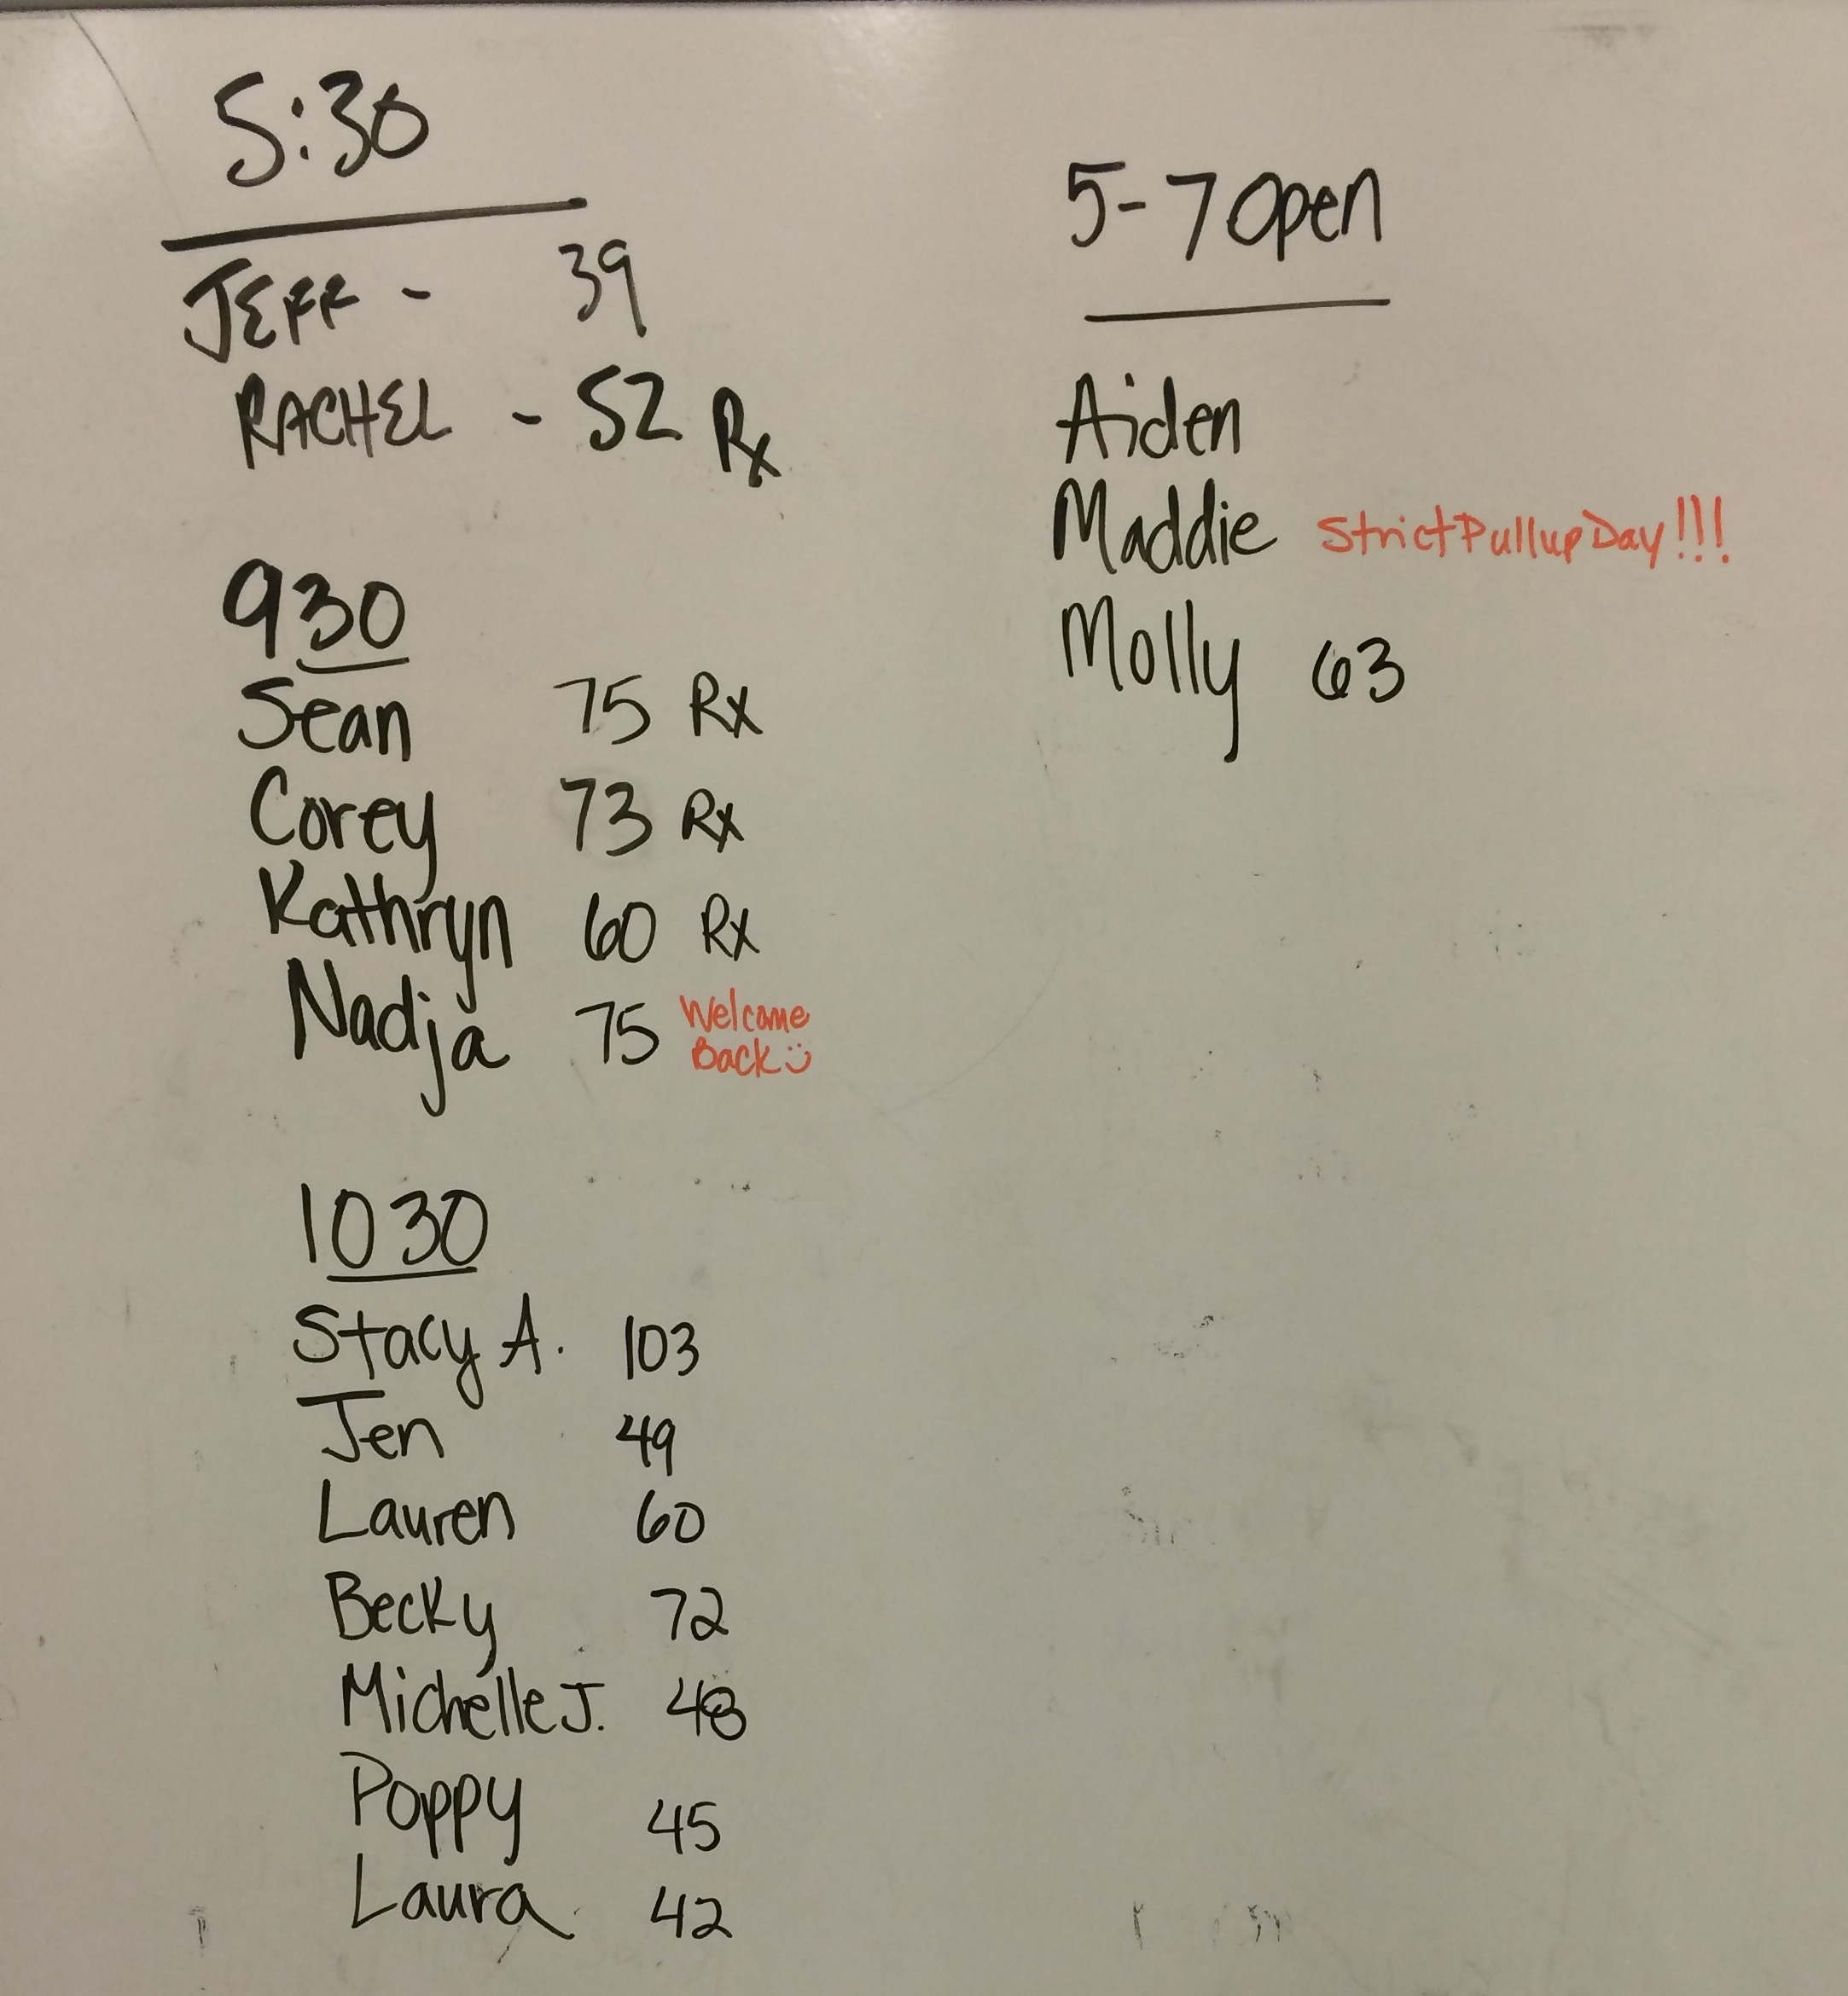 5:30
JEFF - 39
RACHEL - 52 Rx
930
Sean 75 Rx
Corey 73 Rx
Kathryn 60 Rx
Nadja 75 Welcome
Back
1030
Stacy A. 103
Jen 49
Lauren 60
Becky 72
Michelle J. 48
Poppy 45
Laura 42
5-7 Open
Aiden
Maddie Strict Pullup Day!!!
Molly 63